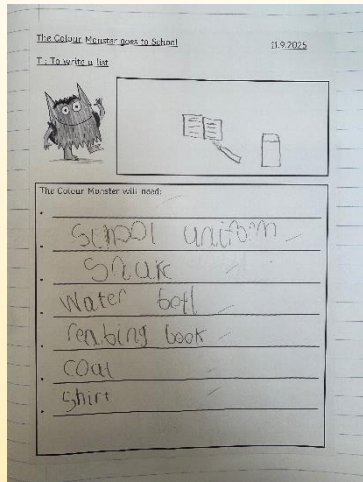 The Colour Monster goes to School 11.9.2025
T : To write a list
The Colour Monster will need:
School uniform
Snak
Water botl
reabing book
coat
Shirt